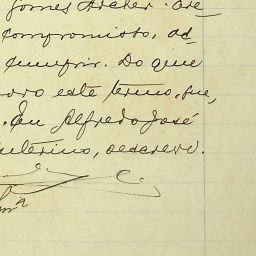 Gomes Archer. De-
compromisso, ad-
cumprir. Do que
este termo, que,
. Eu Alfredo José
interino, o escrevi.